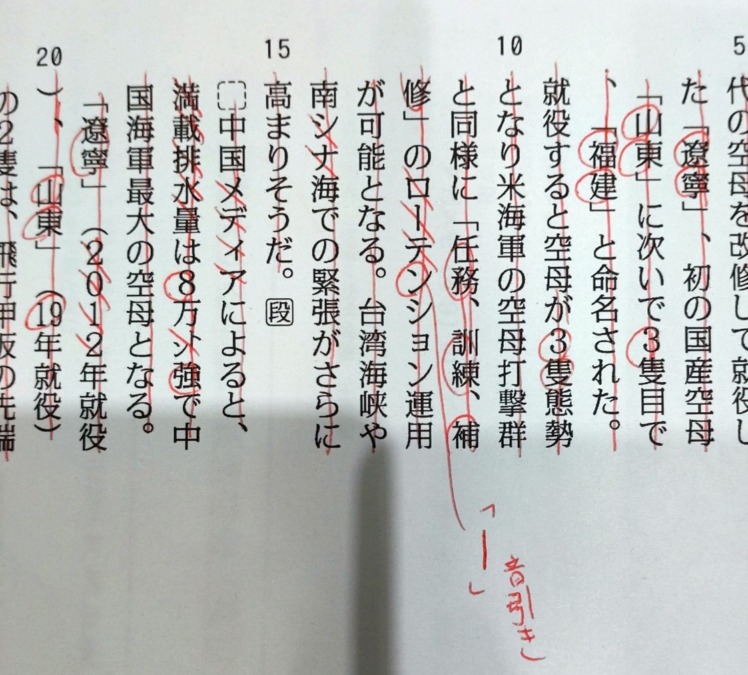 5
代の空母を改修して就役し
た「遼寧」、初の国産空母
「山東」に次いで3隻目で
、「福建」と命名された。
就役すると空母が3隻態勢
10
となり米海軍の空母打撃群
と同様に「任務、訓練、補
修」のローテンション運用
が可能となる。台湾海峡や
南シナ海での緊張がさらに
15
高まりそうだ。段
中国メディアによると、
満載排水量は8万㌧強で中
国海軍最大の空母となる。
「遼寧」(2012年就役
20
)、「山東」(19年就役)
の2隻は、飛行甲板の先端
音引き
「ー」